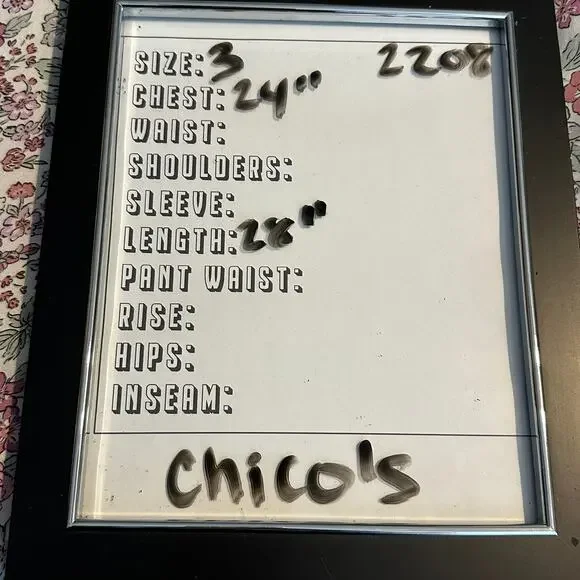 SIZE: 3 2208
CHEST: 24"
WAIST:
SHOULDERS:
SLEEVE:
LENGTH: 28"
PANT WAIST:
RISE:
HIPS:
INSEAM:
Chico's